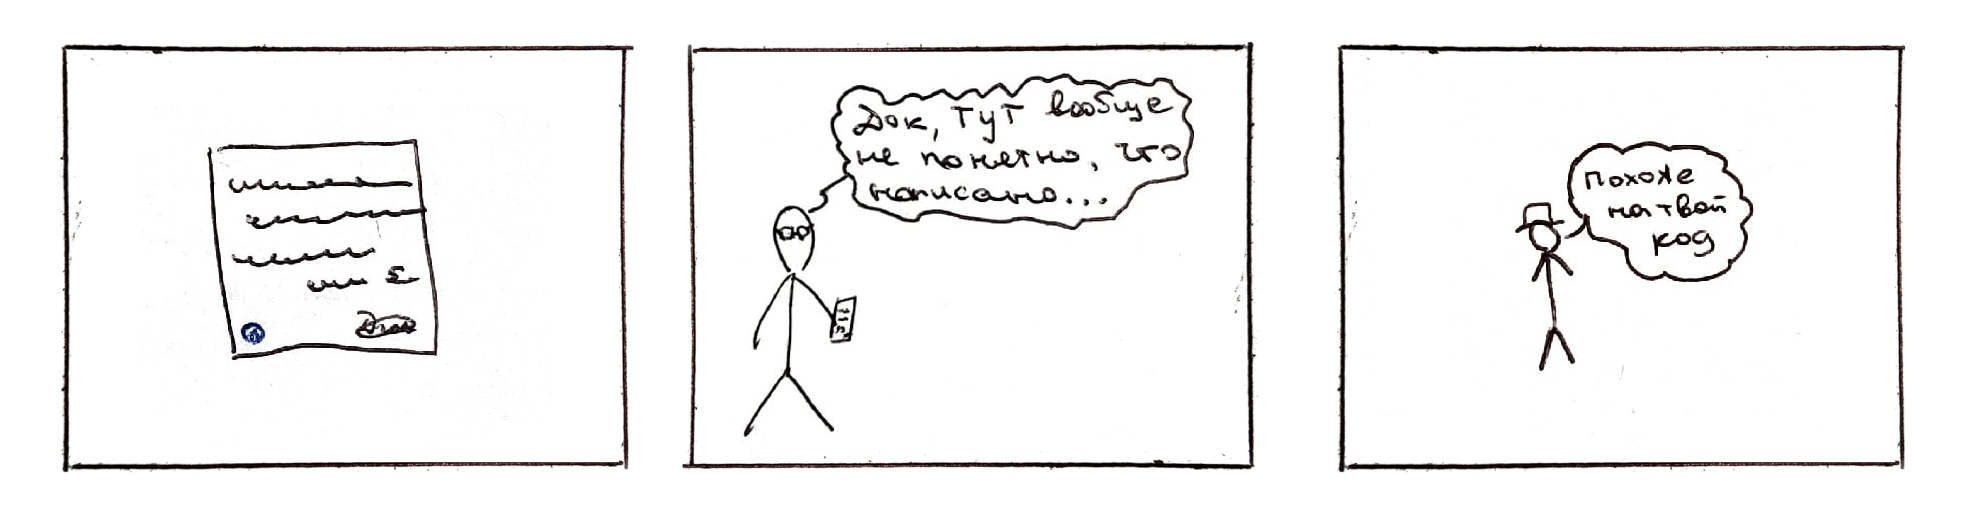 Док, тут вообще
не понятно, что
написано...
похоже
на твой
код